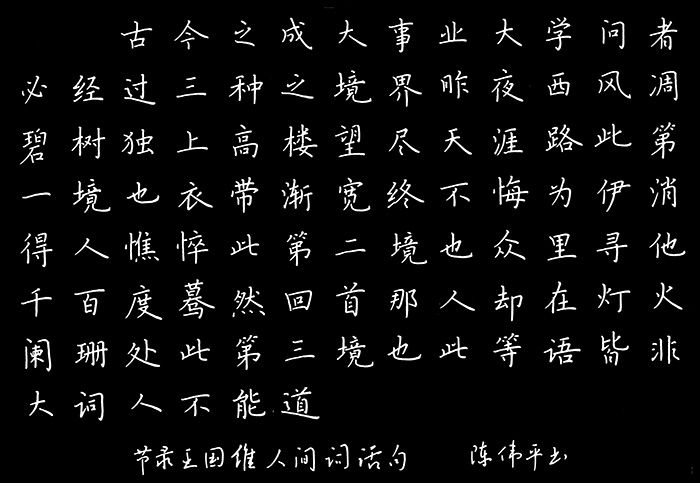 古今之成大事业大学问者
必经过三种之境界昨夜西风凋
碧树独上高楼望尽天涯路此第
一境也衣带渐宽终不悔为伊消
得人憔悴此第二境也众里寻他
千百度蓦然回首那人却在灯火
阑珊处此第三境也此等语皆非
大词人不能道
节录王国维人间词话句 陈伟平书